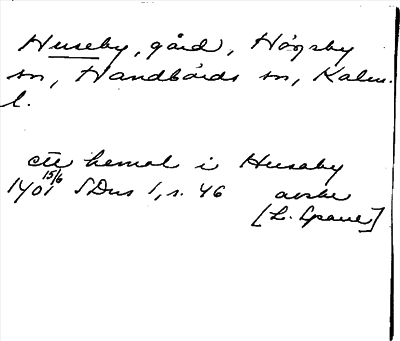 Huseby, gård, Högsby
sn, Handbörds sn, Kalm.
l.
ett hemal i Husaby
15/6
1401 SDns 1, s. 46 avskr
[L.